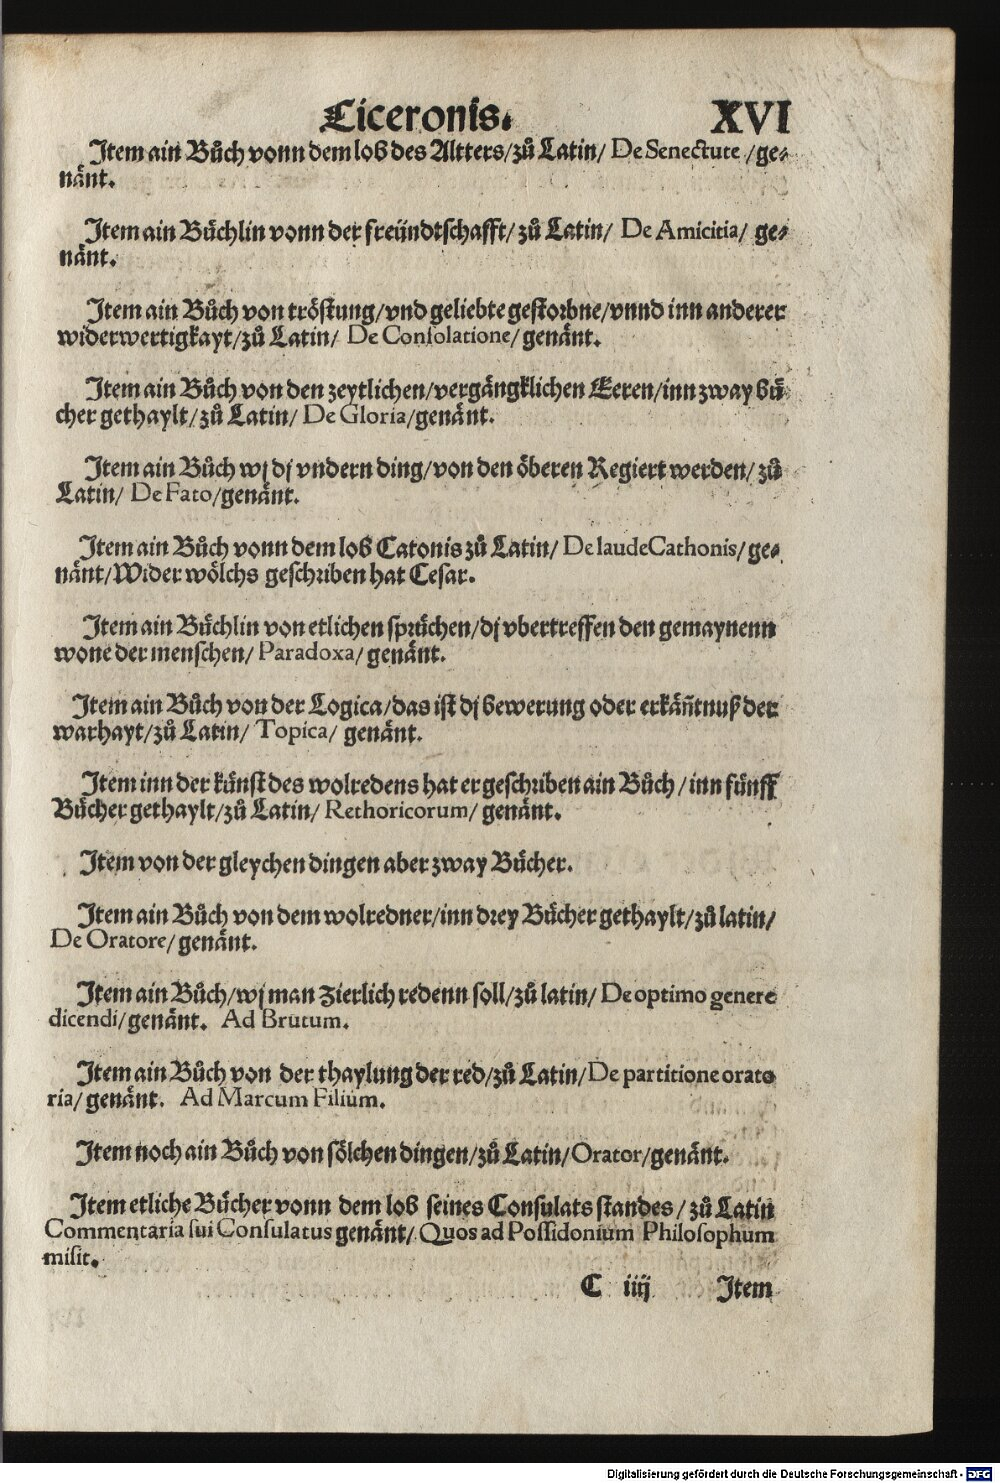 Ciceronis. XVI
Item ain Bůch vonn dem lob des Altters/zů Latin/ De Senectute /ge-
nånt.
Item ain Bůchlin vonn der freündtschafft/ zů Latin/ De Amicitia/ ge-
nånt.
Item ain Bůch von tröstung/vnd geliebte gestorbne/vnnd inn anderer
widerwertigkayt/zů Latin/ De Consolatione/genånt.
Item ain Bůch von den zeytlichen/vergångklichen Eeren/inn zway bü
cher gethaylt/zů Latin/ De Gloria/genånt.
Item ain Bůch wj dj vndern ding/von den öberen Regiert werden/zů
Latin/ De Fato/genånt.
Item ain Bůch vonn dem lob Catonis zů Latin/ De laude Cathonis/ge-
nånt/Wider wölchs geschriben hat Cesar.
Item ain Büchlin von etlichen sprüchen/dj vbertreffen den gemaynenn
wone der menschen/ Paradoxa/genånt.
Item ain Bůch von der Logica/das ist dj bewerung oder erkåñtnuß der
warhayt/zů Latin/ Topica/ genånt.
Item inn der künst des wolredens hat er geschriben ain Bůch /inn fünff
Bücher gethaylt/zů Latin/ Rethoricorum/ genånt.
Item von der gleychen dingen aber zway Bücher.
Item ain Bůch von dem wolredner/inn drey Bücher gethaylt/zů latin/
De Oratore/genånt.
Item ain Bůch/wj man Zierlich redenn soll/zů latin/ De optimo genere
dicendi/genånt. Ad Brutum.
Item ain Bůch von der thaylung der red/zů Latin/De partitione orato
ria/genånt. Ad Marcum Filium.
Item noch ain Bůch von sölchen dingen/zů Latin/Orator/genånt.
Item etliche Bücher vonn dem lob seines Consulats standes /zů Latin
Commentaria sui Consulatus genånt/ Quos ad Possidonium Philosophum
misit.
C iiij Item
Digitalisierung gefördert durch die Deutsche Forschungsgemeinschaft - DFG